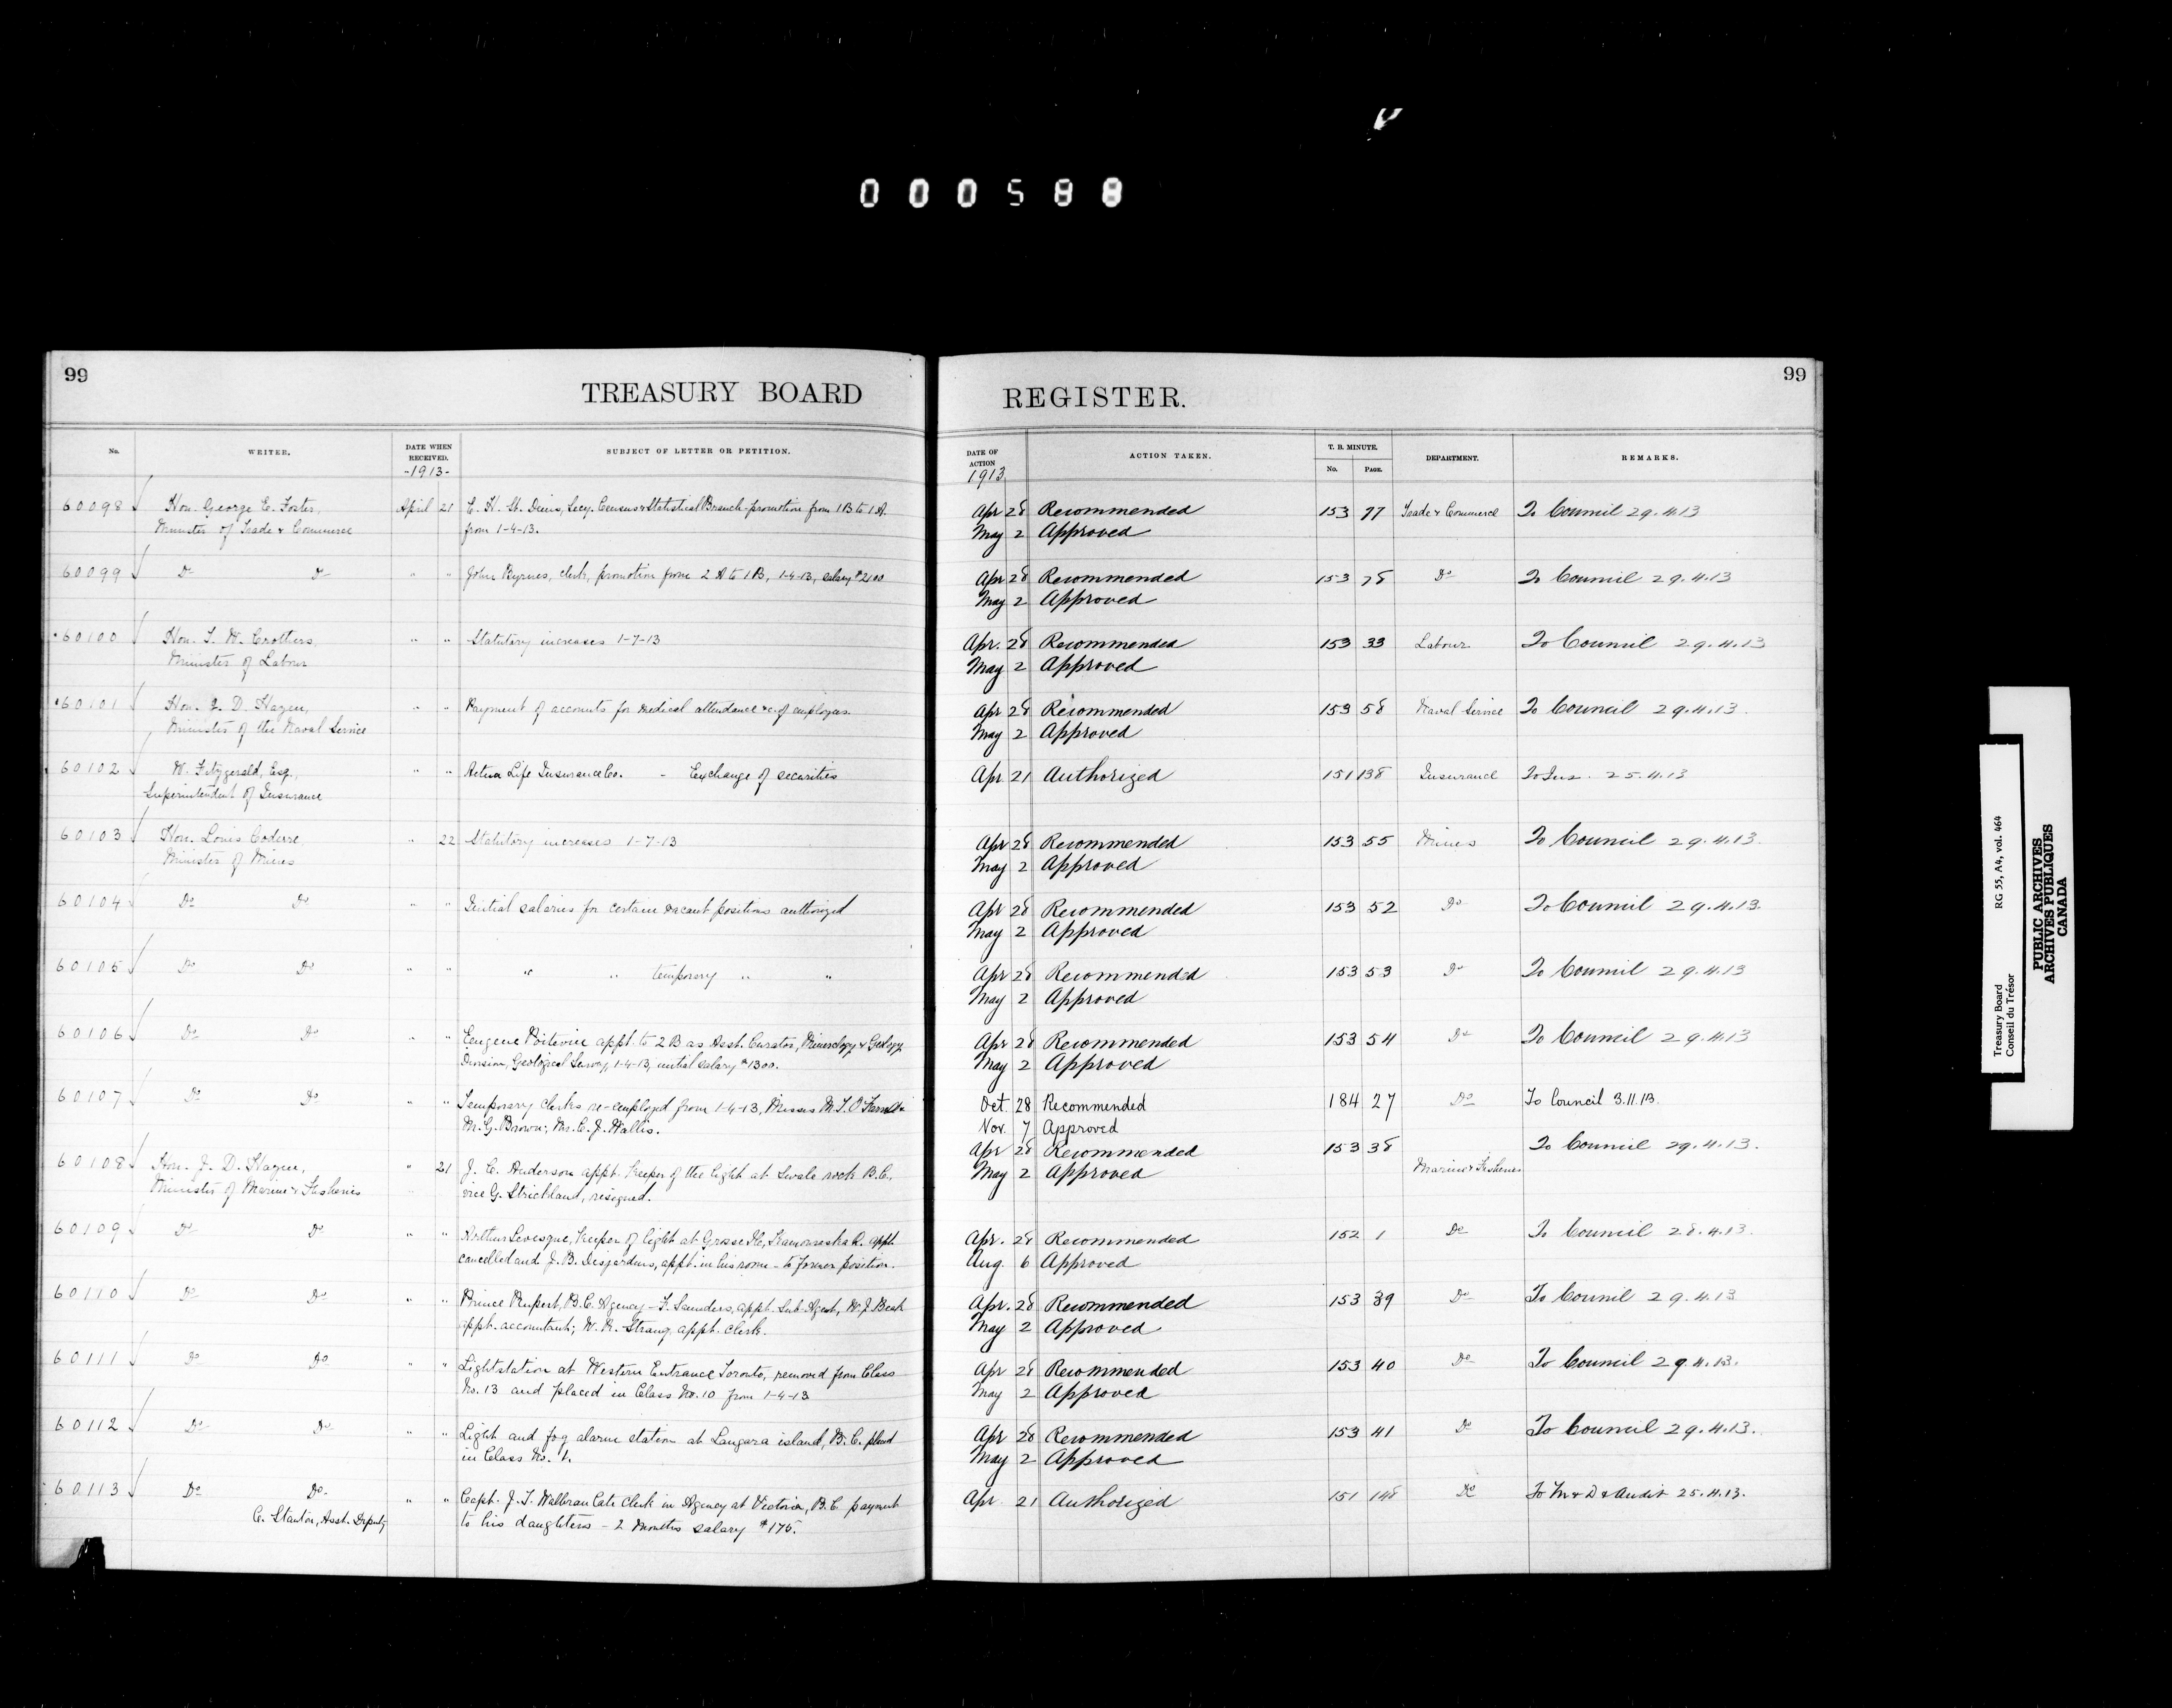 000588
99
TREASURY BOARD
No. WRITER. DATE WHEN RECEIVED. SUBJECT OF LETTER OR PETITION.
-1913-
60098 Hon. George E. Foster, April 21 E. H. St. Denis, Secy. Census & Statistical Branch promotion from 1B to 1A.
Minister of Trade & Commerce from 1-4-13.
60099 Do Do " " John Byrnes, clerk, promotion from 2A to 1B, 1-4-13, salary $2100
60100 Hon. T. W. Crothers, " " Statutory increases 1-7-13
Minister of Labour
60101 Hon. J. D. Hazen, " " Payment of accounts for medical attendance &c. of employees.
Minister of the Naval Service
60102 W. Fitzgerald, Esq., " " Aetna Life Insurance Co. - Exchange of securities
Superintendent of Insurance
60103 Hon. Louis Coderre " 22 Statutory increases 1-7-13
Minister of Mines
60104 Do Do " " Initial salaries for certain vacant positions authorized
60105 Do Do " " " " temporary " "
60106 Do Do " " Eugene Poitevin appt. to 2B as Asst. Curator, Mineralogy & Geology
Division, Geological Survey, 1-4-13, initial salary $1300.
60107 Do Do " " Temporary clerks re-employed from 1-4-13, Misses M. T. O'Farrell &
M. G. Brown; Mr. C. J. Wallis.
60108 Hon. J. D. Hazen, " 21 J. C. Anderson appt. Keeper of the light at rock B.C.,
Minister of Marine & Fisheries vice G. Strickland, resigned.
60109 Do Do " " Arthur Levesque, Keeper of light at Grosse Ile, Kamouraska Q. appt.
cancelled and J. B. Desjardins, appt. in his room - to former position.
60110 Do Do " " Prince Rupert, B.C. Agency - F. Saunders, appt. Sub-Agent, W. J. Beck
appt. accountant; W. R. Strang, appt. clerk.
60111 Do Do " " Lightstation at Western Entrance Toronto, removed from Class
No. 13 and placed in Class No. 10 from 1-4-13
60112 Do Do " " Light and fog alarm station at Langara island, B.C. placed
in Class No. 1.
60113 Do Do " " Capt. J. T. Walbran late clerk in Agency at Victoria, B.C. payment
C. Stanton, Asst. Deputy to his daughters - 2 months salary $175.
99
REGISTER.
DATE OF ACTION ACTION TAKEN. T. B. MINUTE. No. PAGE. DEPARTMENT. REMARKS.
1913
Apr 28 Recommended 153 77 Trade & Commerce To Council 29.4.13
May 2 Approved
Apr 28 Recommended 153 78 Do To Council 29.4.13
May 2 Approved
Apr. 28 Recommended 153 33 Labour To Council 29.4.13
May 2 Approved
Apr 28 Recommended 153 58 Naval Service To Council 29.4.13.
May 2 Approved
Apr 21 Authorized 151 138 Insurance To Ins. 25.4.13
Apr 28 Recommended 153 55 Mines To Council 29.4.13.
May 2 Approved
Apr 28 Recommended 153 52 Do To Council 29.4.13.
May 2 Approved
Apr 28 Recommended 153 53 Do To Council 29.4.13
May 2 Approved
Apr 28 Recommended 153 54 Do To Council 29.4.13
May 2 Approved
Oct. 28 Recommended 184 27 Do To Council 3.11.13.
Nov. 7 Approved
Apr 28 Recommended 153 38 Marine & Fisheries To Council 29.4.13.
May 2 Approved
Apr. 28 Recommended 152 1 Do To Council 28.4.13.
Aug. 6 Approved
Apr. 28 Recommended 153 39 Do To Council 29.4.13
May 2 Approved
Apr 28 Recommended 153 40 Do To Council 29.4.13.
May 2 Approved
Apr 28 Recommended 153 41 Do To Council 29.4.13.
May 2 Approved
Apr. 21 Authorized 151 148 Do To M & D & Audit 25.4.13.
Treasury Board RG 55, A4, vol. 464
Conseil du Trésor
PUBLIC ARCHIVES
ARCHIVES PUBLIQUES
CANADA